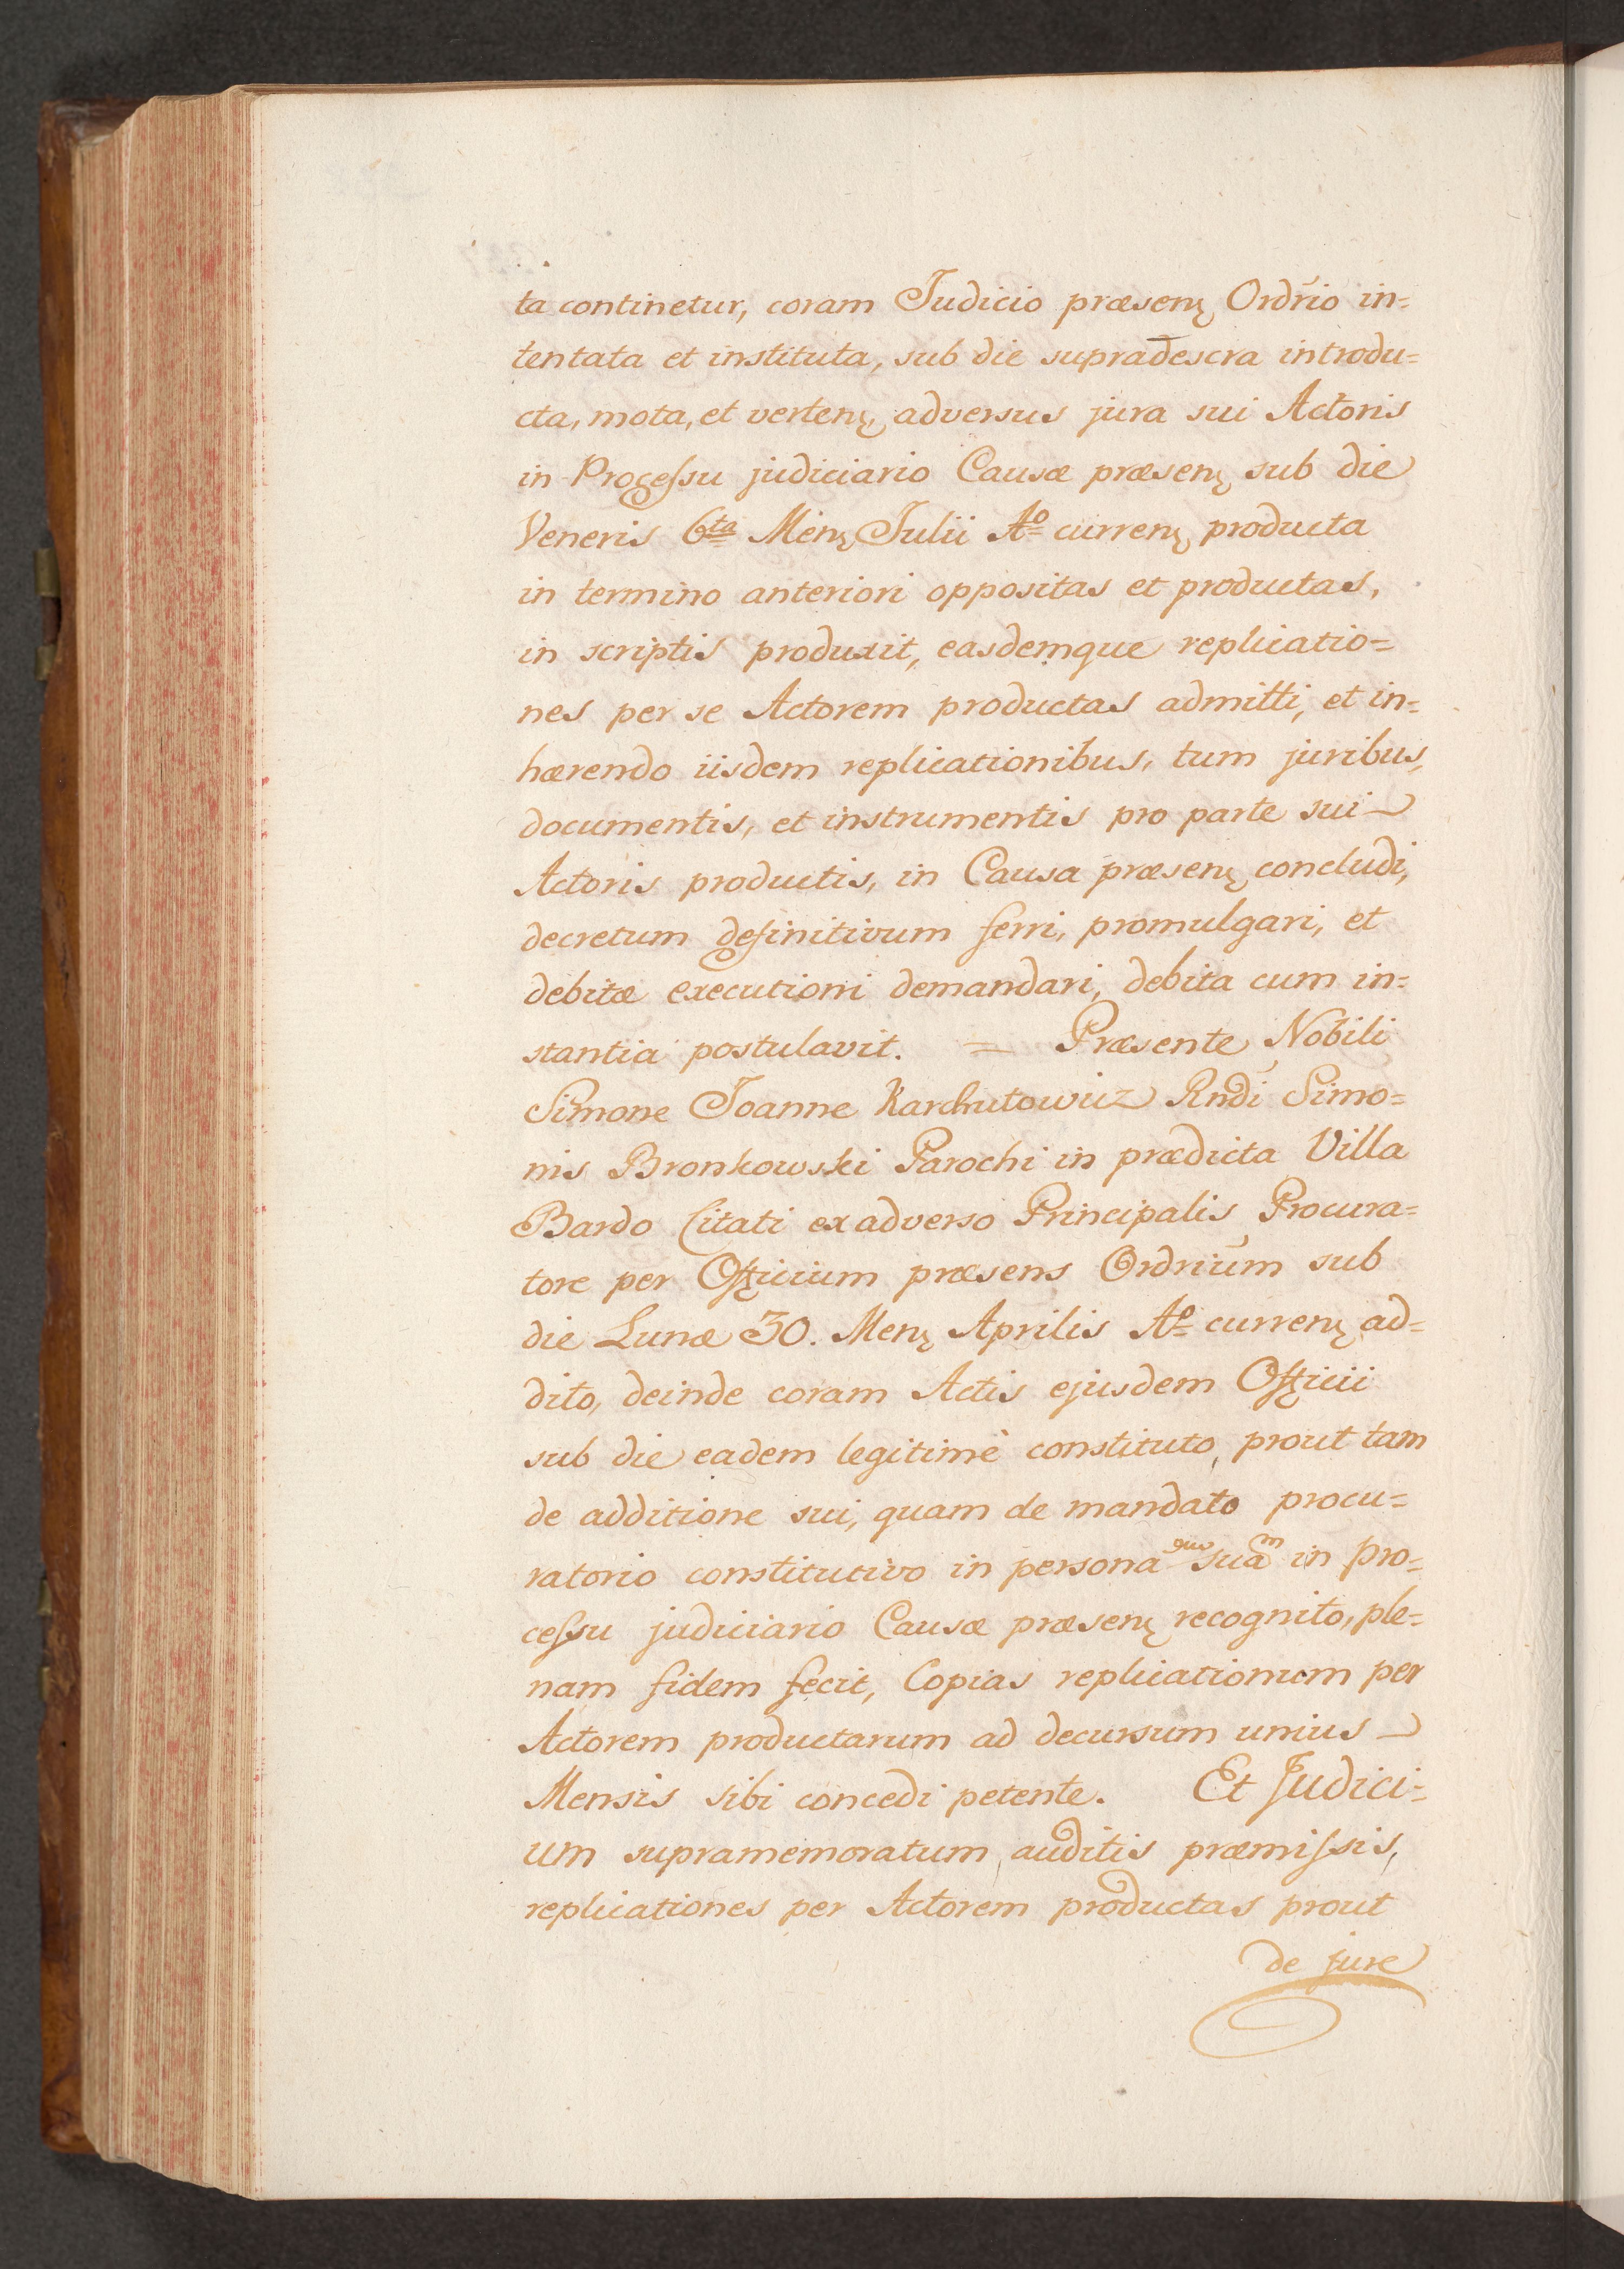 ta continetur, coram Judicio præsenȩ Ordrio in=
tentata et instituta, sub die supradescra introdu=
cta, mota, et vertenȩ, adversus jura sui Actoris
in Processu judiciario Causæ præsenȩ sub die
Veneris 6ta Menȩ Julii Ao currenȩ producta
in termino anteriori oppositas et productas,
in scriptis produxit, easdemque replicatio=
nes per se Actorem productas admitti, et in=
hærendo iisdem replicationibus, tum juribus,
documentis, et instrumentis pro parte sui
Actoris productis, in Causa præsenȩ concludi,
decretum definitivum ferri, promulgari, et
debitæ executioni demandari, debita cum in=
stantia postulavit. = Præsente Nobili
Simone Joanne Karchutowicz Rndi Simo=
nis Bronkowski Parochi in prædicta Villa
Bardo Citati ex adverso Principalis Procura=
tore per Officium præsens Ordrium sub
die Lunæ 30. Menȩ Aprilis Ao currenȩ ad=
dito, deinde coram Actis ejusdem Officii
sub die eadem legitimè constituto, prout tam
de additione sui, quam de mandato procu=
ratorio constitutivo in persona suam in pro=
cessu judiciario Causæ præsenȩ recognito, ple=
nam fidem fecit, Copias replicationum per
Actorem productarum ad decursum unius
Mensis sibi concedi petente. Et Judici=
um supramemoratum, auditis præmissis,
replicationes per Actorem productas prout
de jure